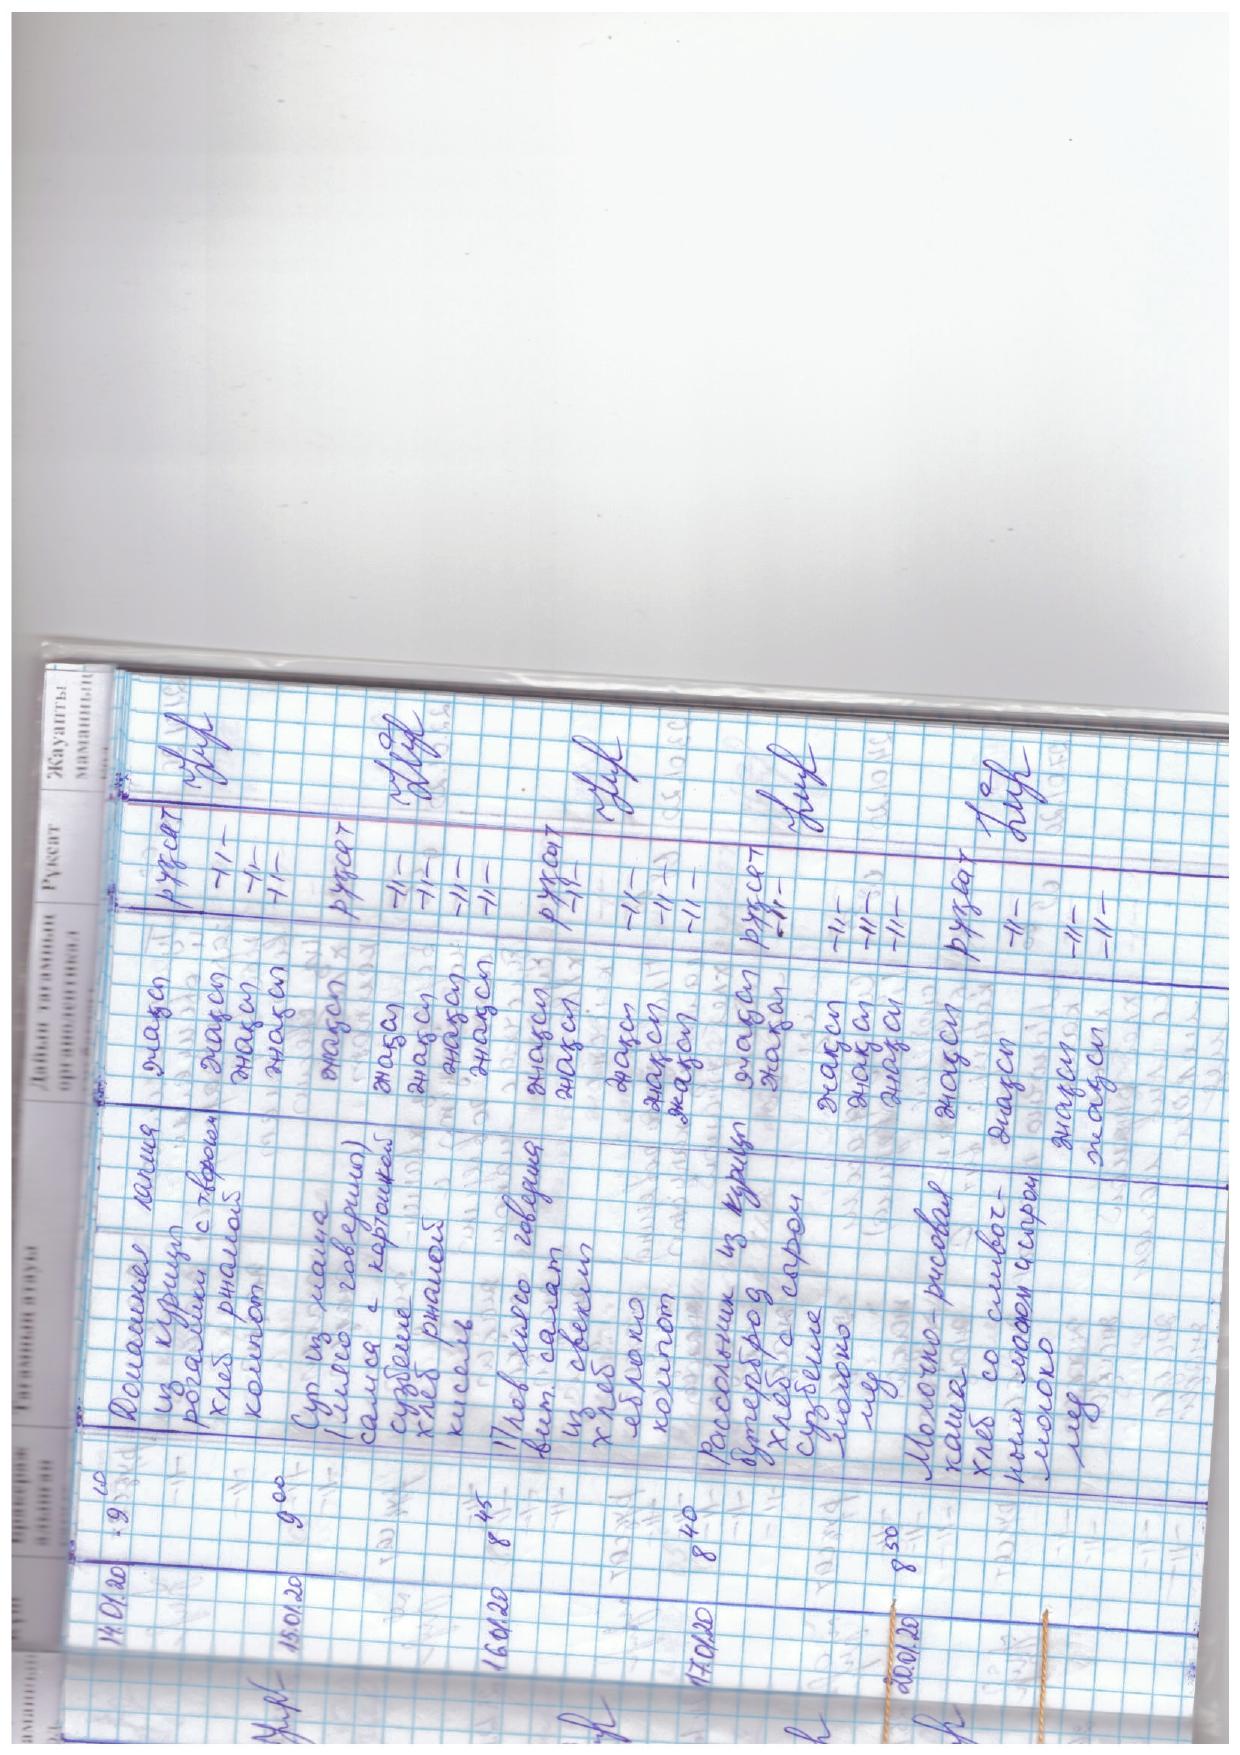 Жауапты
маманның
Рұқсат
Дайын тағамның
органолептикал
Тағамның атауы
Бракераж
алынған
14.01.20 9 10 Домашняя лапша жақсы рұқсат
из курицы
рогалики с творогом жақсы -11-
хлеб ржаной жақсы -11-
компот жақсы -11-
15.01.20 9 00 Суп из маша жақсы рұқсат
(мясо говядины)
самса с картошкой жақсы -11-
сузбеше жақсы -11-
хлеб ржаной жақсы -11-
кисель жақсы -11-
16.01.20 8 45 Плов мясо говядина жақсы рұқсат
вит. салат жақсы -11-
из свеклы
хлеб жақсы -11-
яблоко жақсы -11-
компот жақсы -11-
17.01.20 8 40 Рассольник из курицы жақсы рұқсат
бутерброд жақсы -11-
хлеб с сыром
сузбеше жақсы -11-
молоко жақсы -11-
мед жақсы -11-
20.01.20 8 50 Молочно-рисовая жақсы рұқсат
каша
хлеб со сливоч- жақсы -11-
ным маслом и сыром
молоко жақсы -11-
мед жақсы -11-